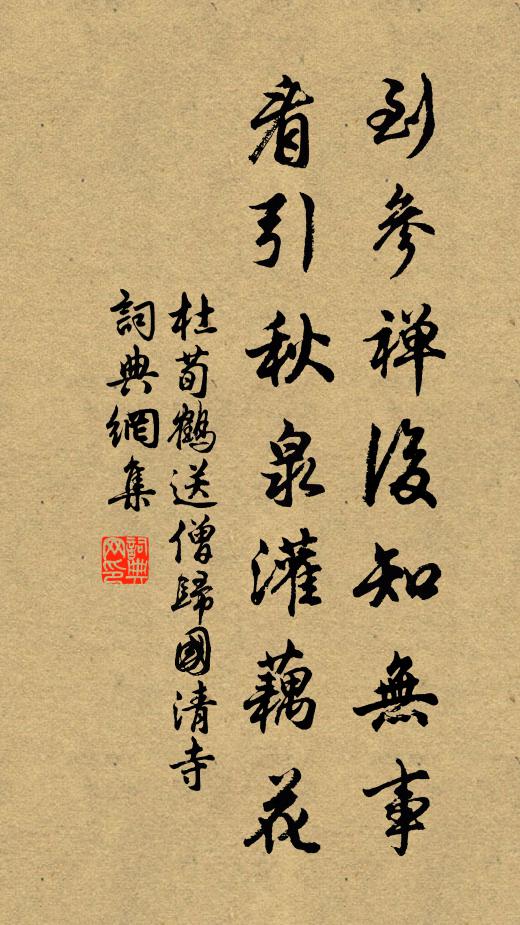 到參禪後知無事
看引秋泉灌藕花
杜荀鶴送僧歸國清寺
詞典網集
詞典网印